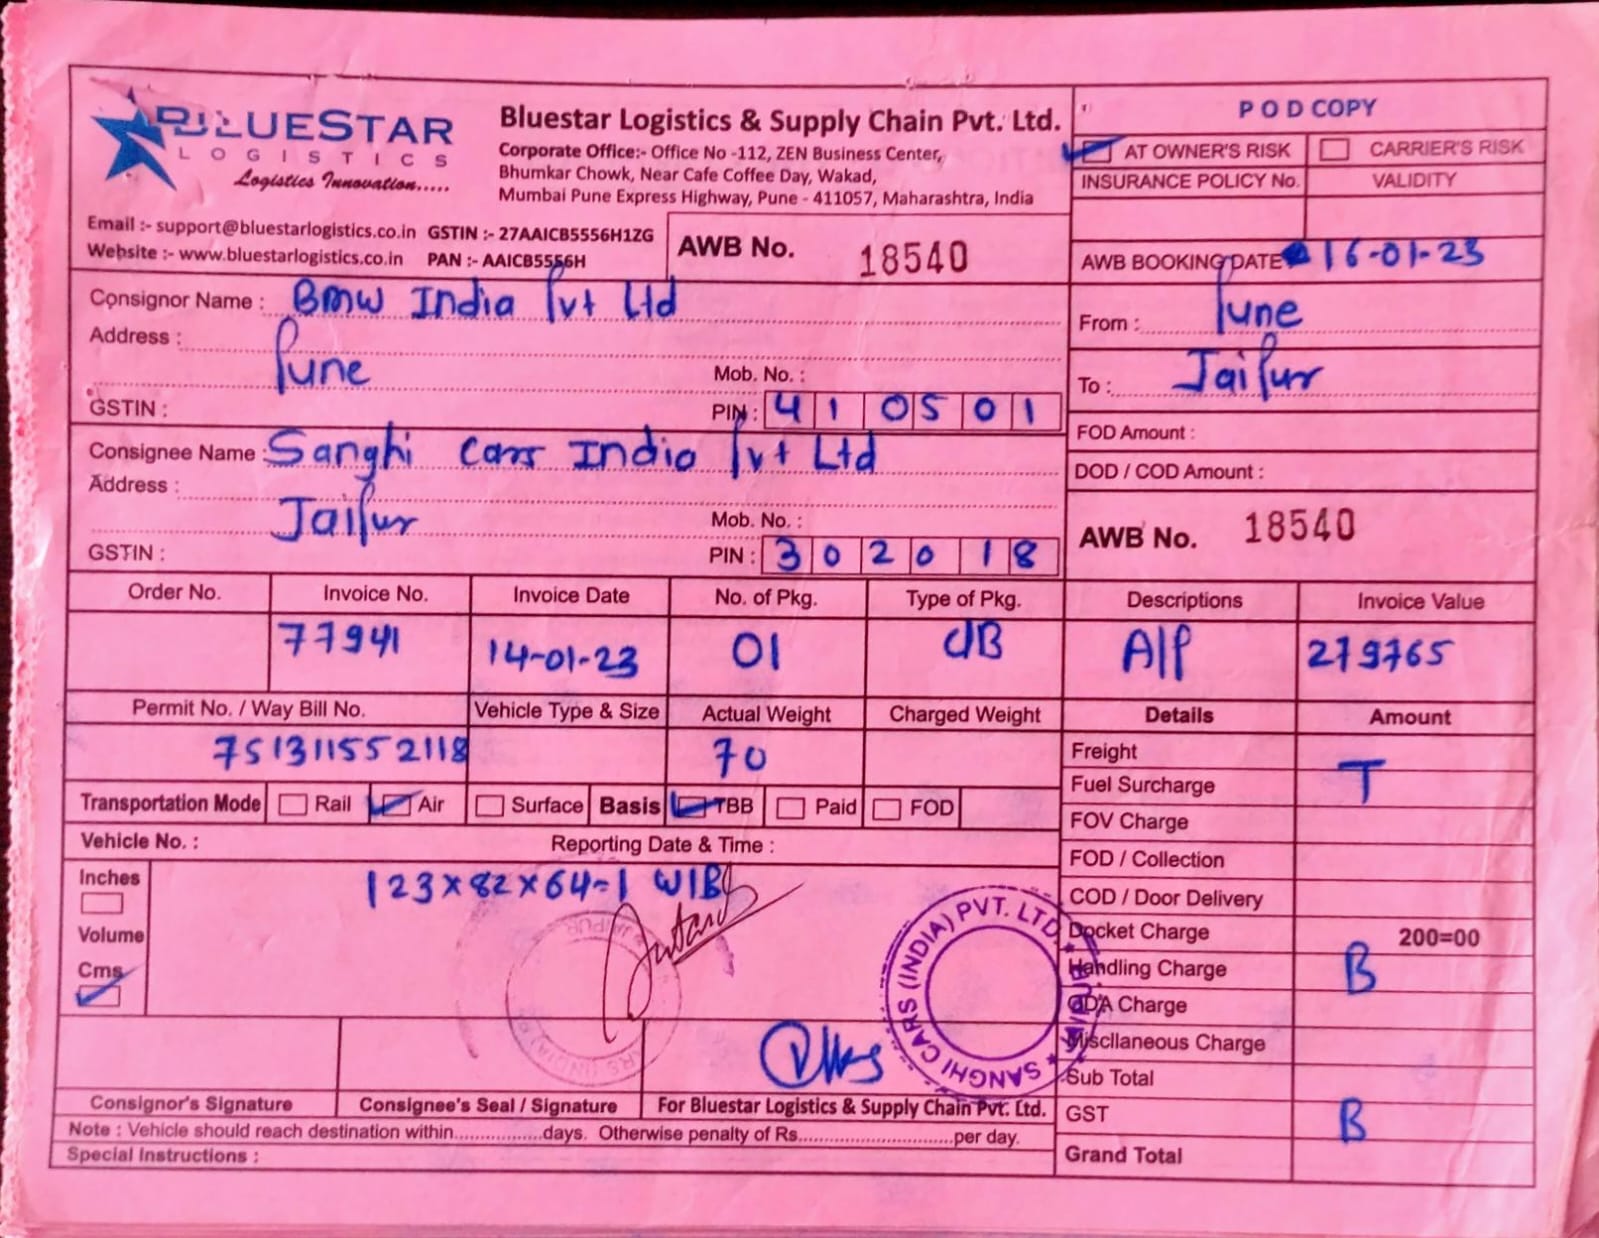 BLUESTAR
LOGISTICS
Logistics Innovation.....
Bluestar Logistics & Supply Chain Pvt. Ltd.
Corporate Office:- Office No -112, ZEN Business Center,
Bhumkar Chowk, Near Cafe Coffee Day, Wakad,
Mumbai Pune Express Highway, Pune - 411057, Maharashtra, India
Email :- support@bluestarlogistics.co.in GSTIN :- 27AAICB5556H1ZG
Website :- www.bluestarlogistics.co.in PAN :- AAICB5556H
AWB No. 18540
POD COPY
AT OWNER'S RISK CARRIER'S RISK
INSURANCE POLICY No. VALIDITY
AWB BOOKING DATE 16-01-23
Consignor Name : BMW India Pvt Ltd
Address :
Pune
Mob. No. :
GSTIN : PIN : 410501
From : Pune
To : Jaipur
Consignee Name : Sanghi Cars India Pvt Ltd
Address :
Jaipur
Mob. No. :
GSTIN : PIN : 302018
FOD Amount :
DOD / COD Amount :
AWB No. 18540
Order No. Invoice No. Invoice Date No. of Pkg. Type of Pkg. Descriptions Invoice Value
77941 14-01-23 01 CB A/P 279765
Permit No. / Way Bill No. Vehicle Type & Size Actual Weight Charged Weight Details Amount
751311552118 70
Transportation Mode Rail Air Surface Basis TBB Paid FOD
Vehicle No. : Reporting Date & Time :
Inches
Volume
Cms
123×82×64-1 WIB
Freight
T
Fuel Surcharge
FOV Charge
FOD / Collection
COD / Door Delivery
Docket Charge 200=00
Handling Charge B
ODA Charge
Miscllaneous Charge
Sub Total
GST B
Grand Total
SANGHI CARS (INDIA) PVT. LTD.
Consignor's Signature Consignee's Seal / Signature For Bluestar Logistics & Supply Chain Pvt. Ltd.
Note : Vehicle should reach destination within.................days. Otherwise penalty of Rs.............................per day.
Special Instructions :